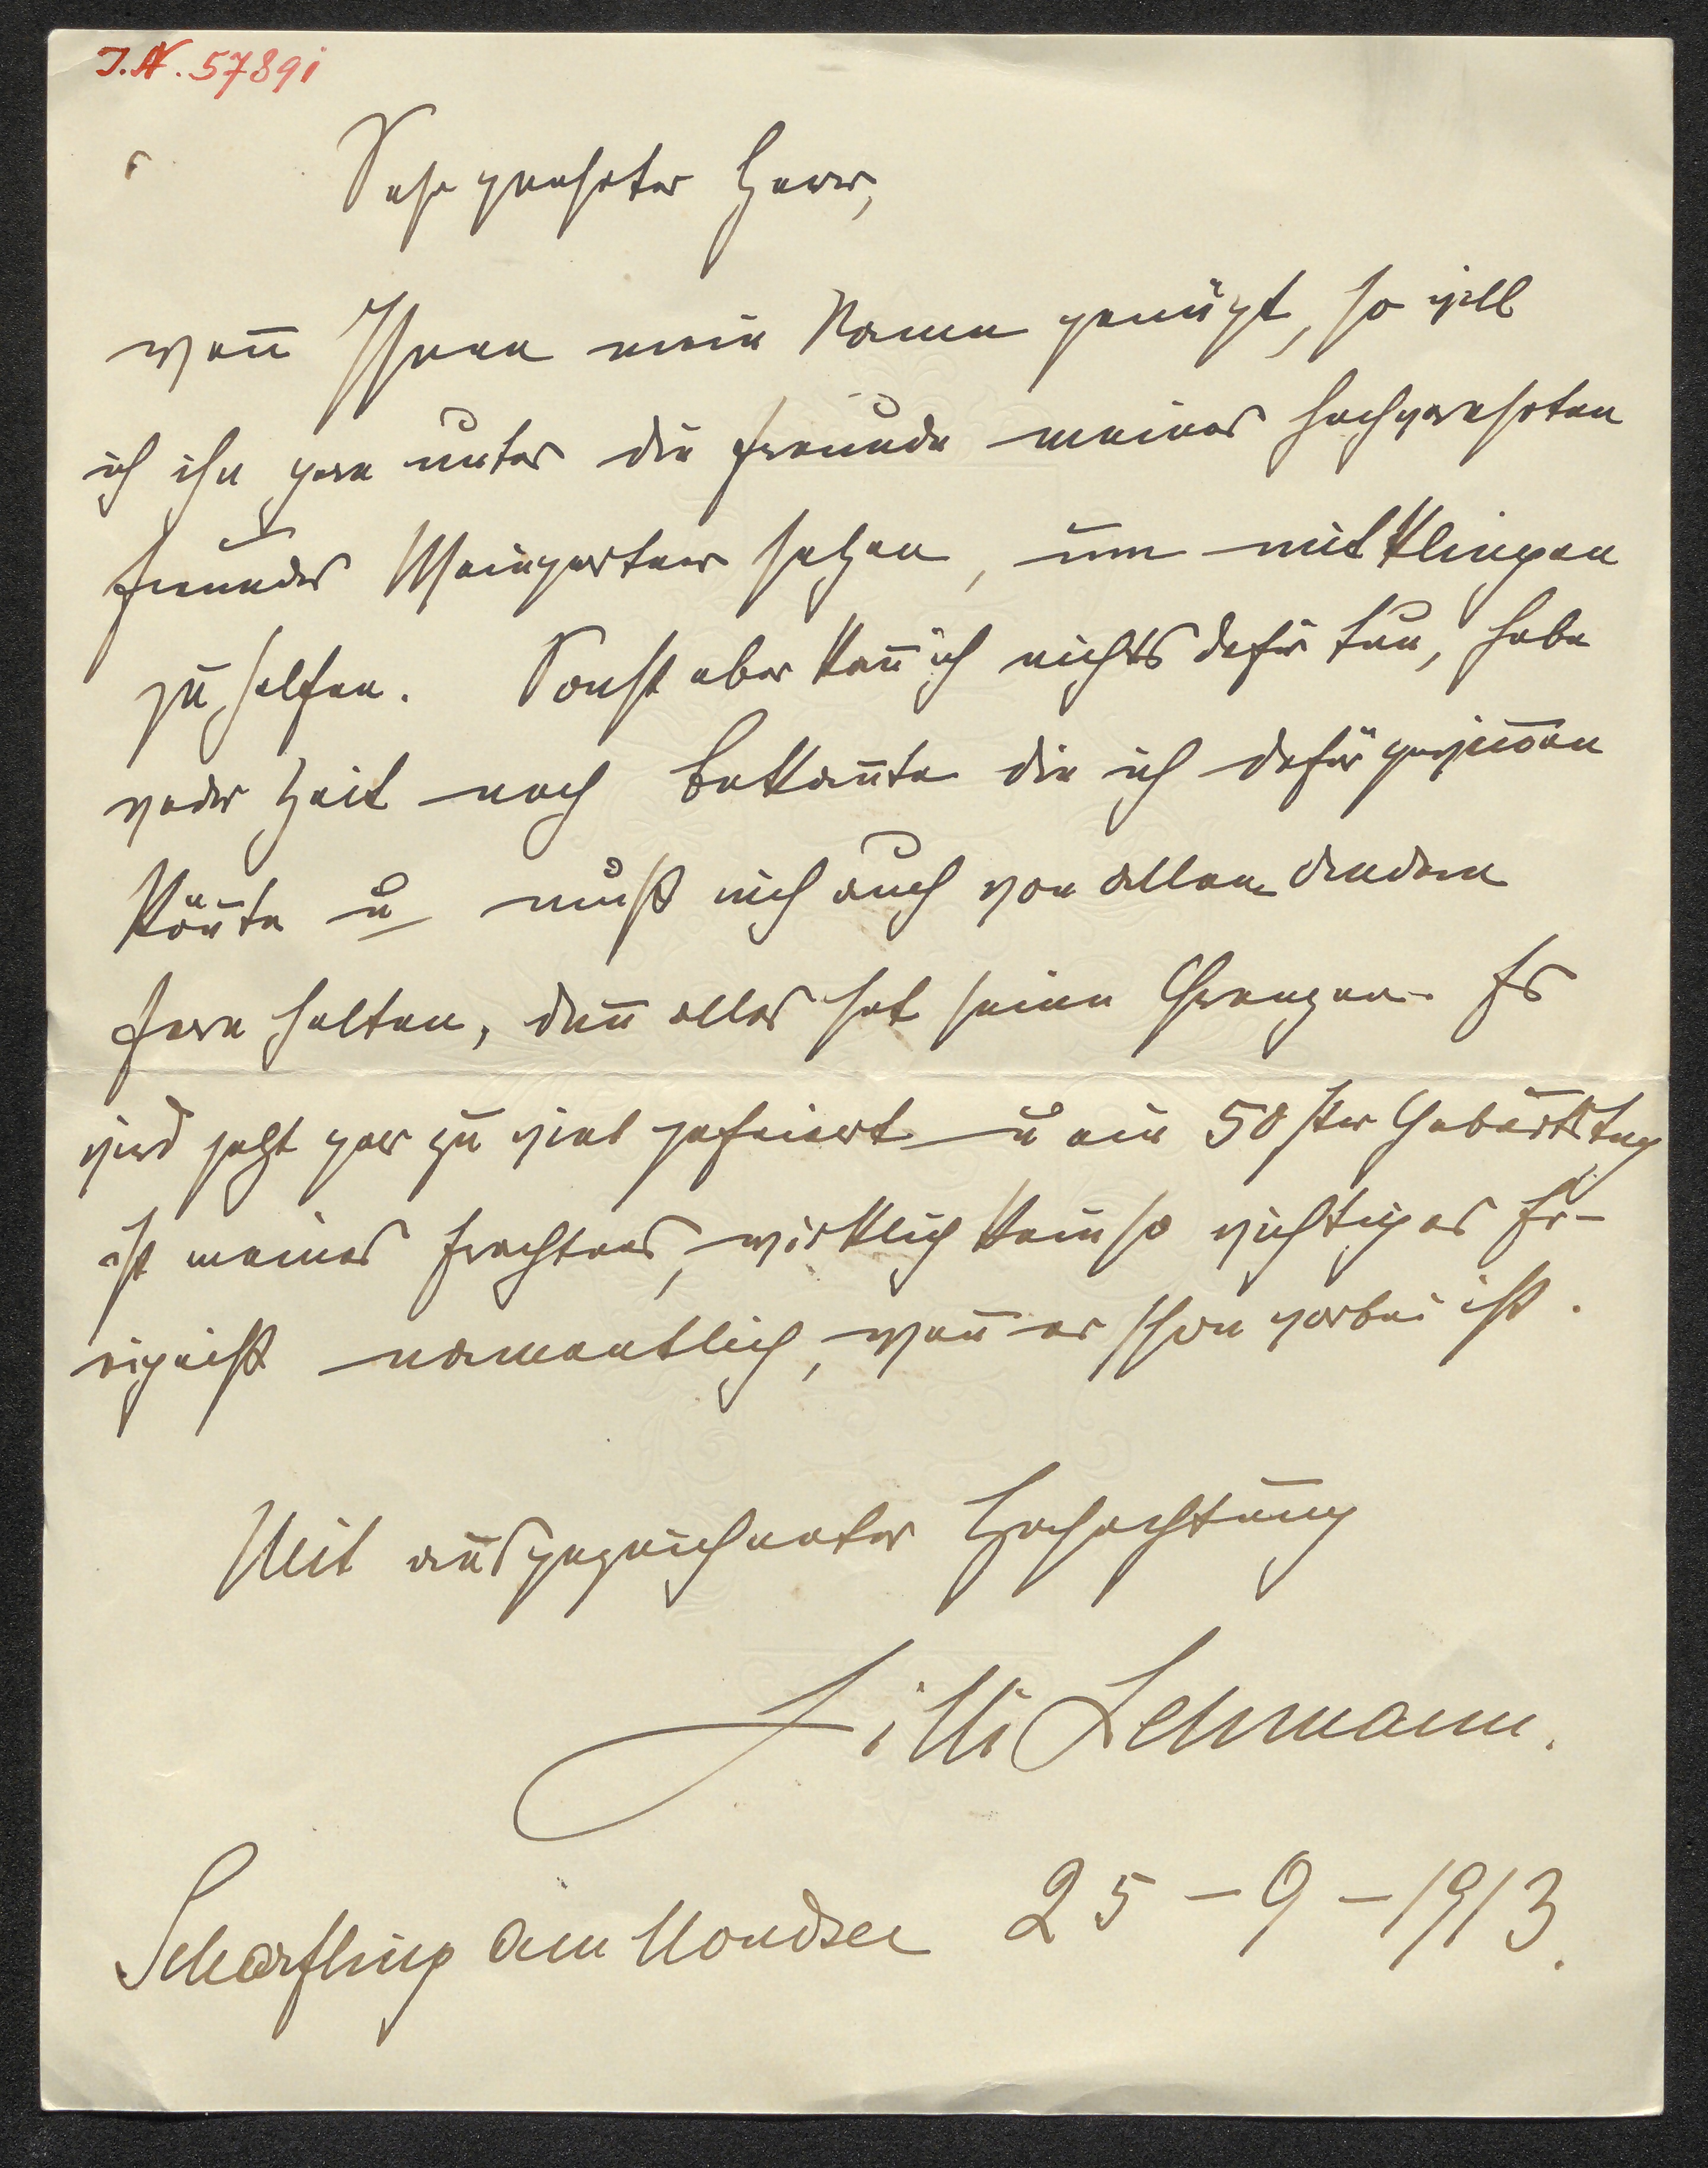 J.N. 57891
Sehr geehrter Herr,
wen̄ Ihnen mein Name genügt, so will
ich ihn gern unter die Freunde meines hochverehrten
Freundes Weingartner setzen, um mit klingen
zu helfen. Sonst aber kan̄ ich nichts dafür tun, habe
weder Zeit noch Bekan̄te die ich dafür gewin̄en
kön̄te u muß mich auch von allem Andern
fern halten, den̄ alles hat seine Grenzen. Es
wird jetzt gar zu viel gefeiert u ein 50ster Geburtstag
ist meines Erachtens, wirklich kein so wichtiges Er-
eigniß namentlich, wen̄ er schon vorbei ist.
Mit ausgezeichneter Hochachtung
Lilli Lehmann.
Scharfling am Mondsee 25-9-1913.